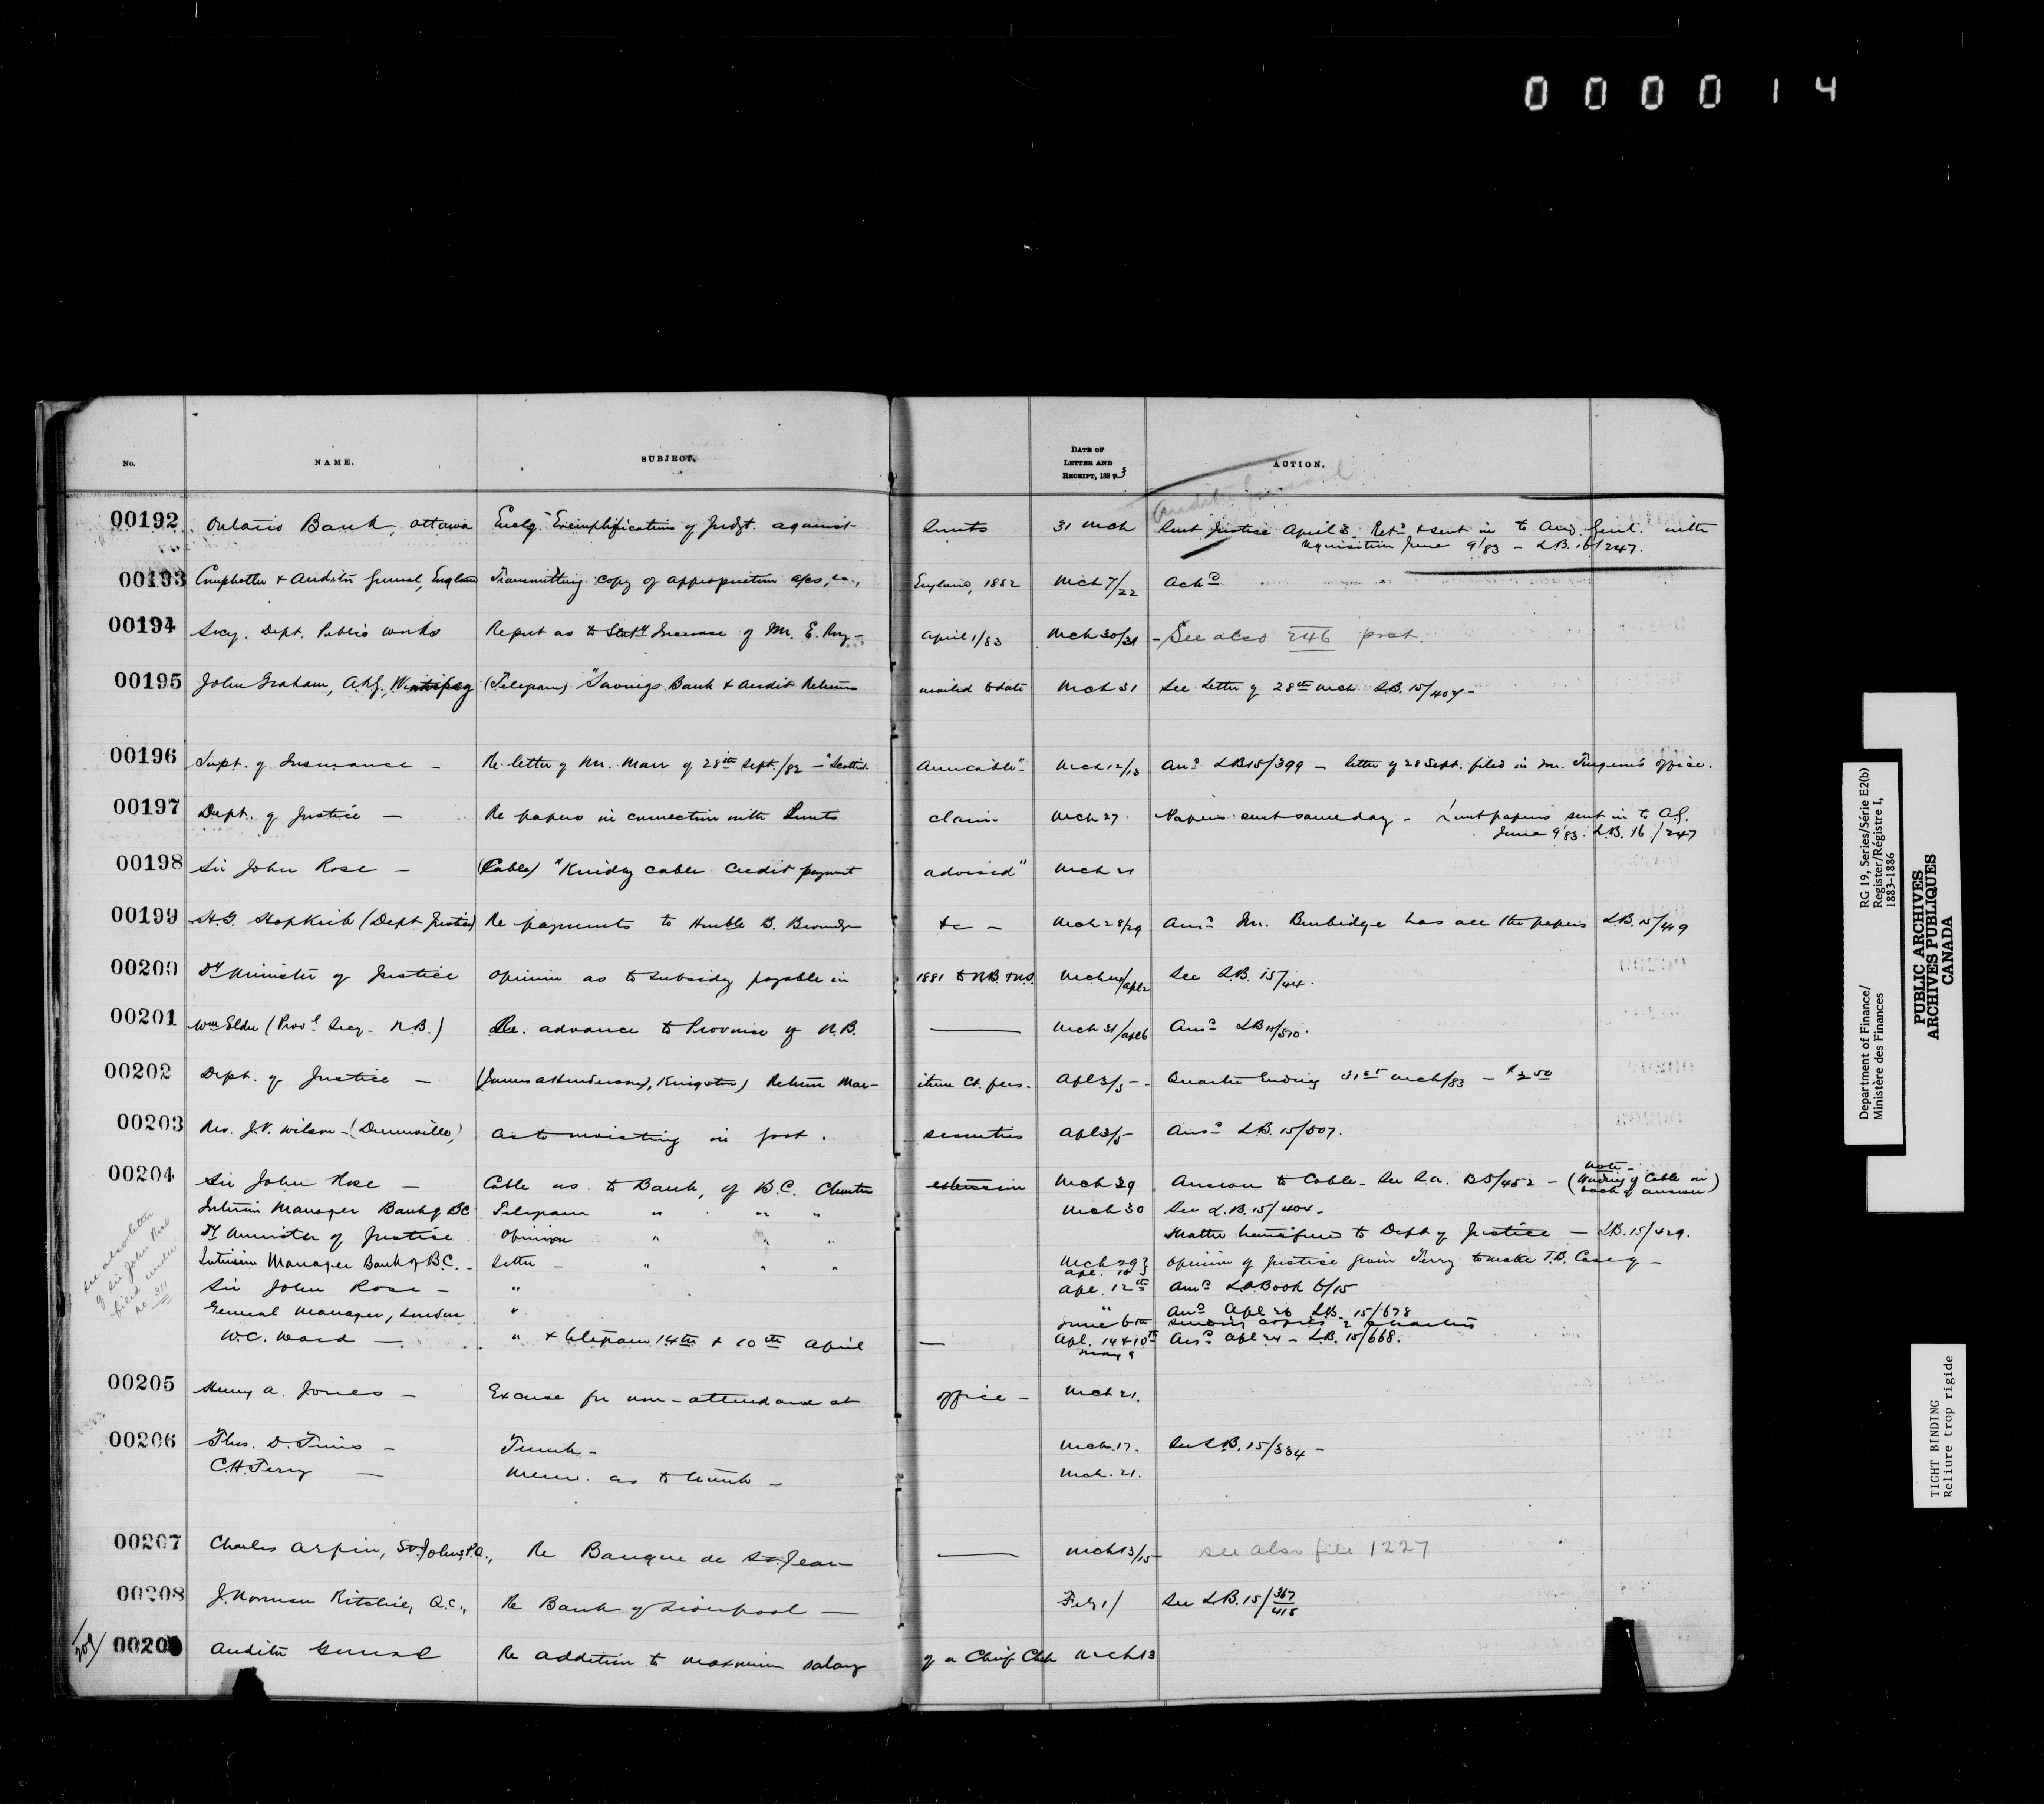 000014
No.
NAME.
SUBJECT.
DATE OF
LETTER AND
RECEIPT, 1883
ACTION.
Auditor General
00192 Ontario Bank, Ottawa Enclg. Exemplification of Judgt. against 31 Mch Sent Justice April 3. Retd & sent in to Aud. Genl. with
requisition June 9/83 - L.B. 16/247.
00193 Comptroller & Auditor General, England Transmitting copy of appropriation a/cs, England, 1882 Mch 7/22 Ackd
00194 Secy. Dept. Public Works Report as to Staty Increase of Mr. E. April 1/83 Mch 30/31 - See also 246 post.
00195 John Graham, A.R.G., Winnipeg (Telegram) "Savings Bank & Audit Returns mailed to date Mch 31 See letter of 28th Mch L.B. 15/404 -
00196 Supt. of Insurance - Re letter of Mr. Marr of 28th Sept./82 - "Scottish Amicable" - Mch 12/13 Ansd LB 15/399 - letter of 28 Sept. filed in Mr. office.
00197 Dept. of Justice - Re papers in connection with claim Mch 27 Papers sent same day - papers sent in to A.G.
June 9 '83. L.B. 16/247
00198 Sir John Rose - (Cable) "Kindly cable credit payment advised" Mch 21
00199 (Dept. Justice) Re payments to B. &c - Mch 28/29 Ansd Mr. Burbidge has all the papers L.B. 15/449
00200 Dy Minister of Justice Opinion as to subsidy payable in 1881 to N.B. & N.S. See L.B. 15/44.
00201 Wm Elder (Provl Secy - N.B.) Re. advance to Province of N.B. Mch 31/Apl 6 Ansd LB 15/570.
00202 Dept. of Justice - (James A Henderson, Kingston) Return Maritime Ct. fees. Apl 3/5 - Quarter Ending 31st Mch/83 -
00203 J.V. Wilson - (Dunnville) As to in Govt. securities Apl 3/5 Ansd L.B. 15/507.
00204 Sir John Rose - Cable as to Bank, of B.C. Charter extension Mch 29 Answer to Cable - See B5/452 - (Note - Wording of Cable on
back of answer)
Interim Manager Bank of BC Telegram " " " Mch 30 See L.B. 15/404 -
Dy Minister of Justice Opinion " " " Matter transferred to Dept of Justice - L.B. 15/429.
Interim Manager Bank of B.C. - Letter - " " " Mch 29 Opinion of Justice given Terry to make T.B. -
Apl. 10
See also letter
of Sir John Rose
filed under
no 311
Sir John Rose - " Apl. 12th Ansd Book 6/15
General Manager, London " " Ansd Apl 26 LB. 15/678
June 6th sending copies
W.C. Ward - " & telegram 14th & 10th April - Apl. 14 & 10th Ansd Apl 24 - L.B. 15/668.
May 9
00205 Henry A. Jones - Excuse for non-attendance at office - Mch 21.
00206 Thos. D. Tims - Trunk - Mch. 17. See L.B. 15/334 -
C.H. Terry - Memo. as to trunk - Mch. 21.
00207 Charles Arpin, St. Johns, P.Q., Re Banque de St. Jean Mch 13/15 see also file 1227
00208 J. Norman Ritchie, Q.C., Re Bank of Liverpool - Feby 1/ See L.B. 15/367/418
209/ 0020 Auditor General Re addition to maximum salary of a Chief Clk Mch 13
Department of Finance/
Ministère des Finances
RG 19, Series/Série E2(b)
Register/Régistre I,
1883-1886
PUBLIC ARCHIVES
ARCHIVES PUBLIQUES
CANADA
TIGHT BINDING
Reliure trop rigide